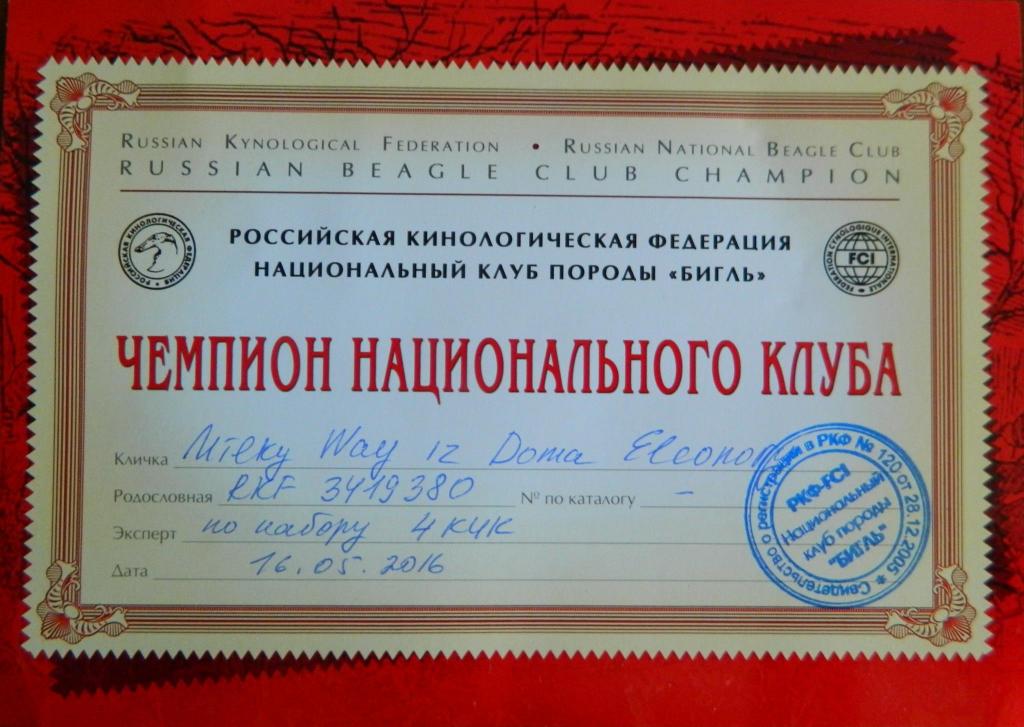 RUSSIAN KYNOLOGICAL FEDERATION • RUSSIAN NATIONAL BEAGLE CLUB
RUSSIAN BEAGLE CLUB CHAMPION
РОССИЙСКАЯ КИНОЛОГИЧЕСКАЯ ФЕДЕРАЦИЯ
FEDERATION CYNOLOGIQUE INTERNATIONALE
FCI
РОССИЙСКАЯ КИНОЛОГИЧЕСКАЯ ФЕДЕРАЦИЯ
НАЦИОНАЛЬНЫЙ КЛУБ ПОРОДЫ «БИГЛЬ»
ЧЕМПИОН НАЦИОНАЛЬНОГО КЛУБА
Кличка Milky Way iz Doma
Родословная RKF 3419380 № по каталогу –
Эксперт по набору 4 КЧК
Дата 16.05.2016
Свидетельство о регистрации в РКФ № 120 от 28.12.2005 *
РКФ-FCI
Национальный
клуб породы
"БИГЛЬ"